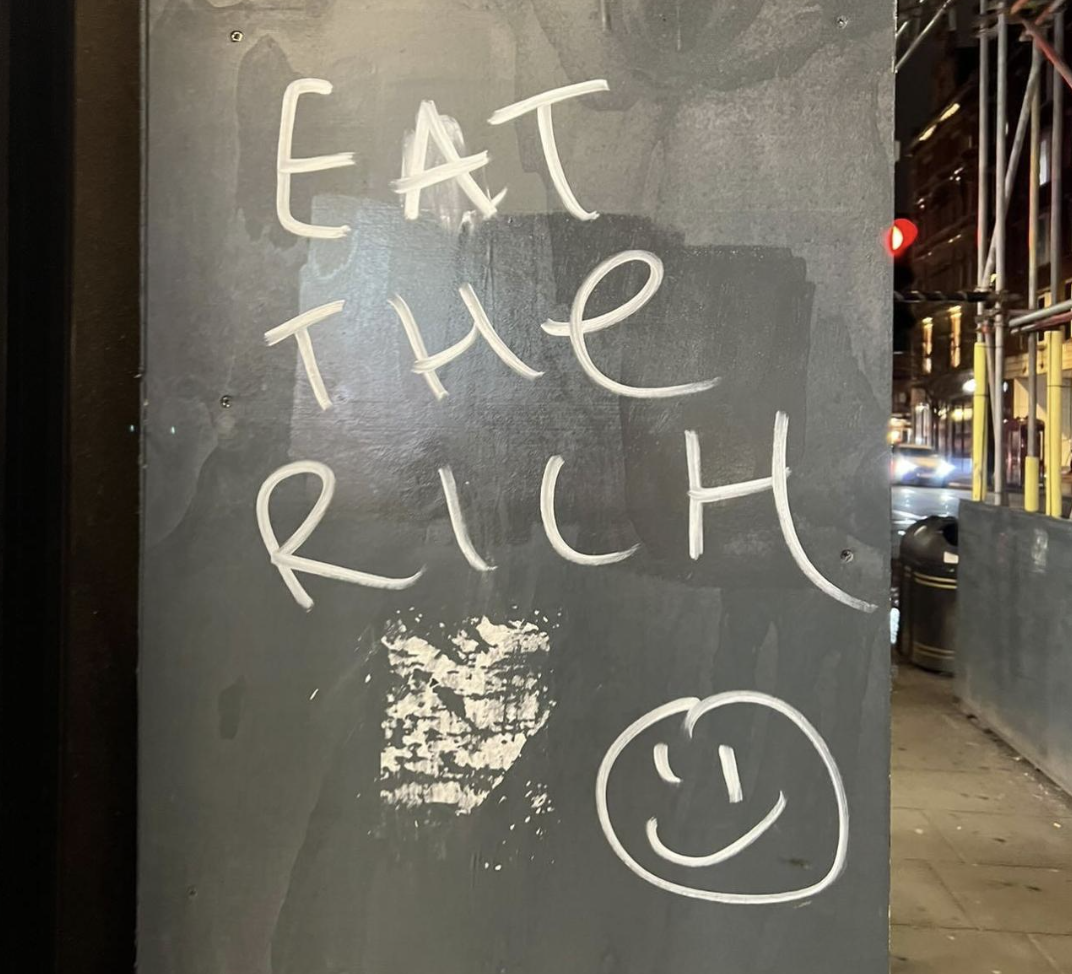 EAT
THe
RICH